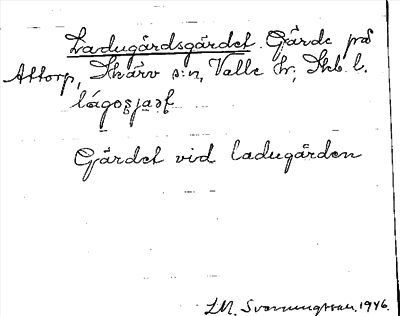 Ladugårdsgärdet. Gärde på
Attorp, Skärv s:n, Valle hr, Skb. l.
Gärdet vid ladugården
I.M. Svenningsson. 1946.